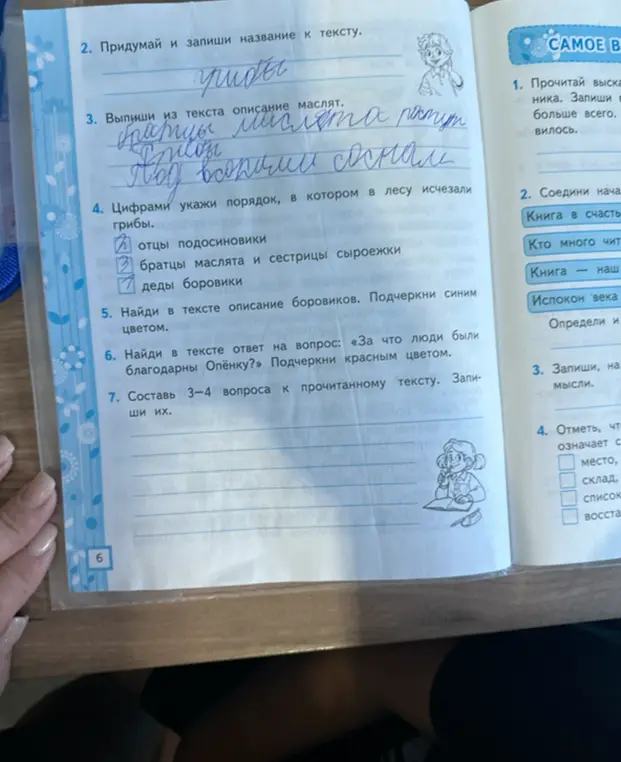 2. Придумай и запиши название к тексту.
грибы
3. Выпиши из текста описание маслят.
братцы маслята растут
Под всорыми соснам
4. Цифрами укажи порядок, в котором в лесу исчезали
грибы.
2 отцы подосиновики
3 братцы маслята и сестрицы сыроежки
1 деды боровики
5. Найди в тексте описание боровиков. Подчеркни синим
цветом.
6. Найди в тексте ответ на вопрос: «За что люди были
благодарны Опёнку?» Подчеркни красным цветом.
7. Составь 3—4 вопроса к прочитанному тексту. Запи-
ши их.
6
САМОЕ В
1. Прочитай выска
ника. Запиши
больше всего.
вилось.
2. Соедини нача
Книга в счасть
Кто много чит
Книга — наш
Испокон века
Определи и
3. Запиши, на
мысли.
4. Отметь, чт
означает с
место,
склад,
список
восста